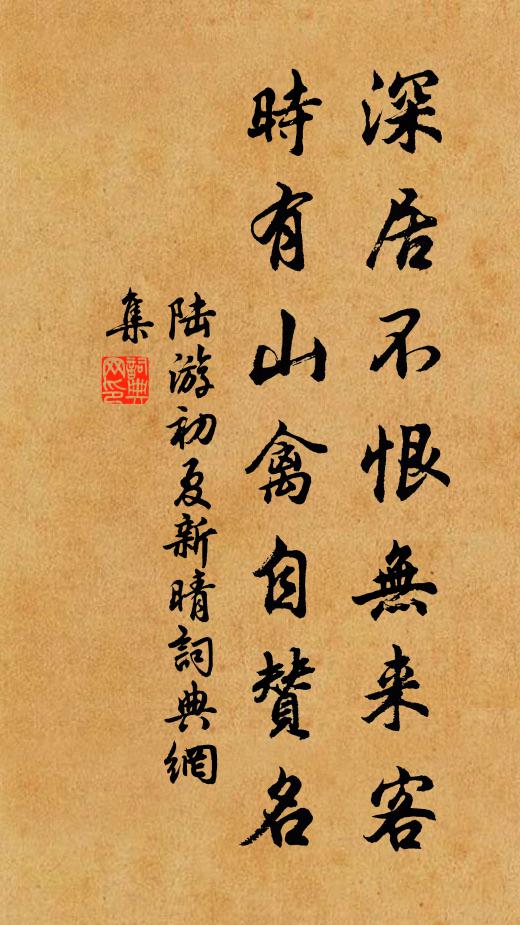 深居不恨無来客
時有山禽自贊名
陆游初夏新晴詞典網
集
詞典
网印